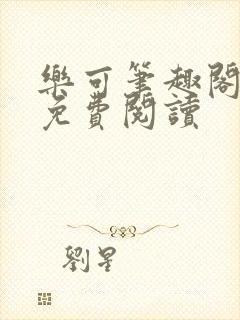 樂可筆趣閣
免費閱讀
劉星